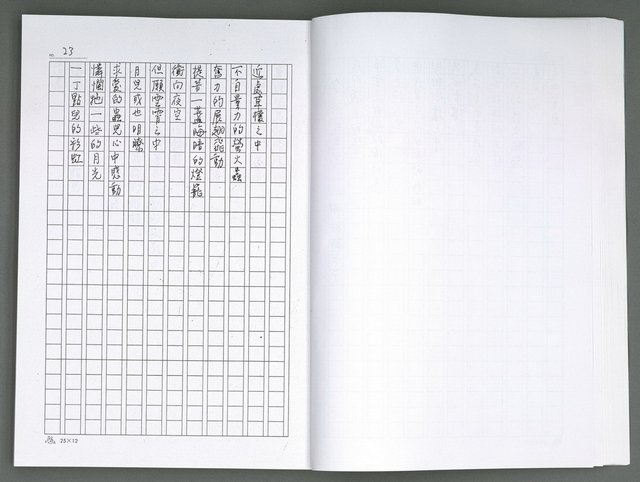 23
近處草之中
不自量力的螢火蟲
奮力的展翅飛動
提著一盞晦暗的燈籠
衝向夜空
但願雲霄之中
月兒或也明瞭
求愛的蟲兒心中悸動
憐一些的月光
一丁點兒的彩虹
25×12